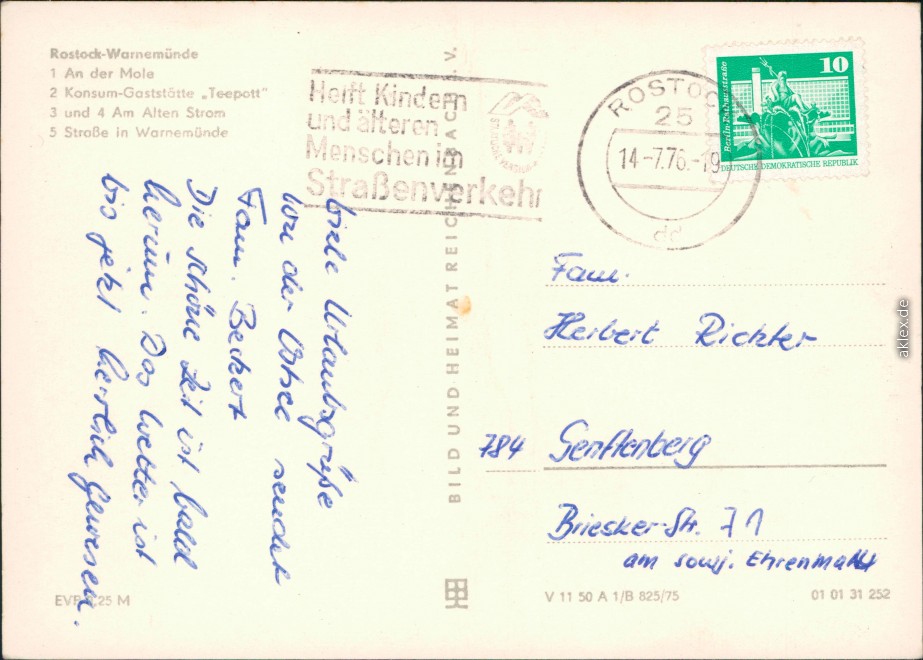 Rostock-Warnemünde
1 An der Mole
2 Konsum-Gaststätte „Teepott"
3 und 4 Am Alten Strom
5 Straße in Warnemünde
Helft Kindern
und älteren
Menschen im
Straßenverkehr
ROSTOCK
25
14.-7.76.-19
dd
10
Berlin-Rathausstraße
DEUTSCHE DEMOKRATISCHE REPUBLIK
Viele Urlaubsgrüße
von der Ostsee sendet
Fam. Beckert
Die schöne Zeit ist bald
herum. Das Wetter ist
bis jetzt herrlich gewesen.
BILD UND HEIMAT REICHENBACH I. V.
Fam.
Herbert Richter
784 Senftenberg
Briesker-Str. 71
am sowj. Ehrenmal
EVP 0,25 M
V 11 50 A 1/B 825/75
01 01 31 252
aklex.de